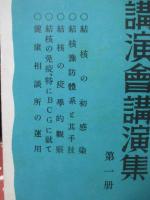 講演會講演集
第一册
○結核の初感染
○結核豫防體系と其手技
○結核の疫學的觀察
○結核の免疫、特にBCGに就て
○健康相談所の運用